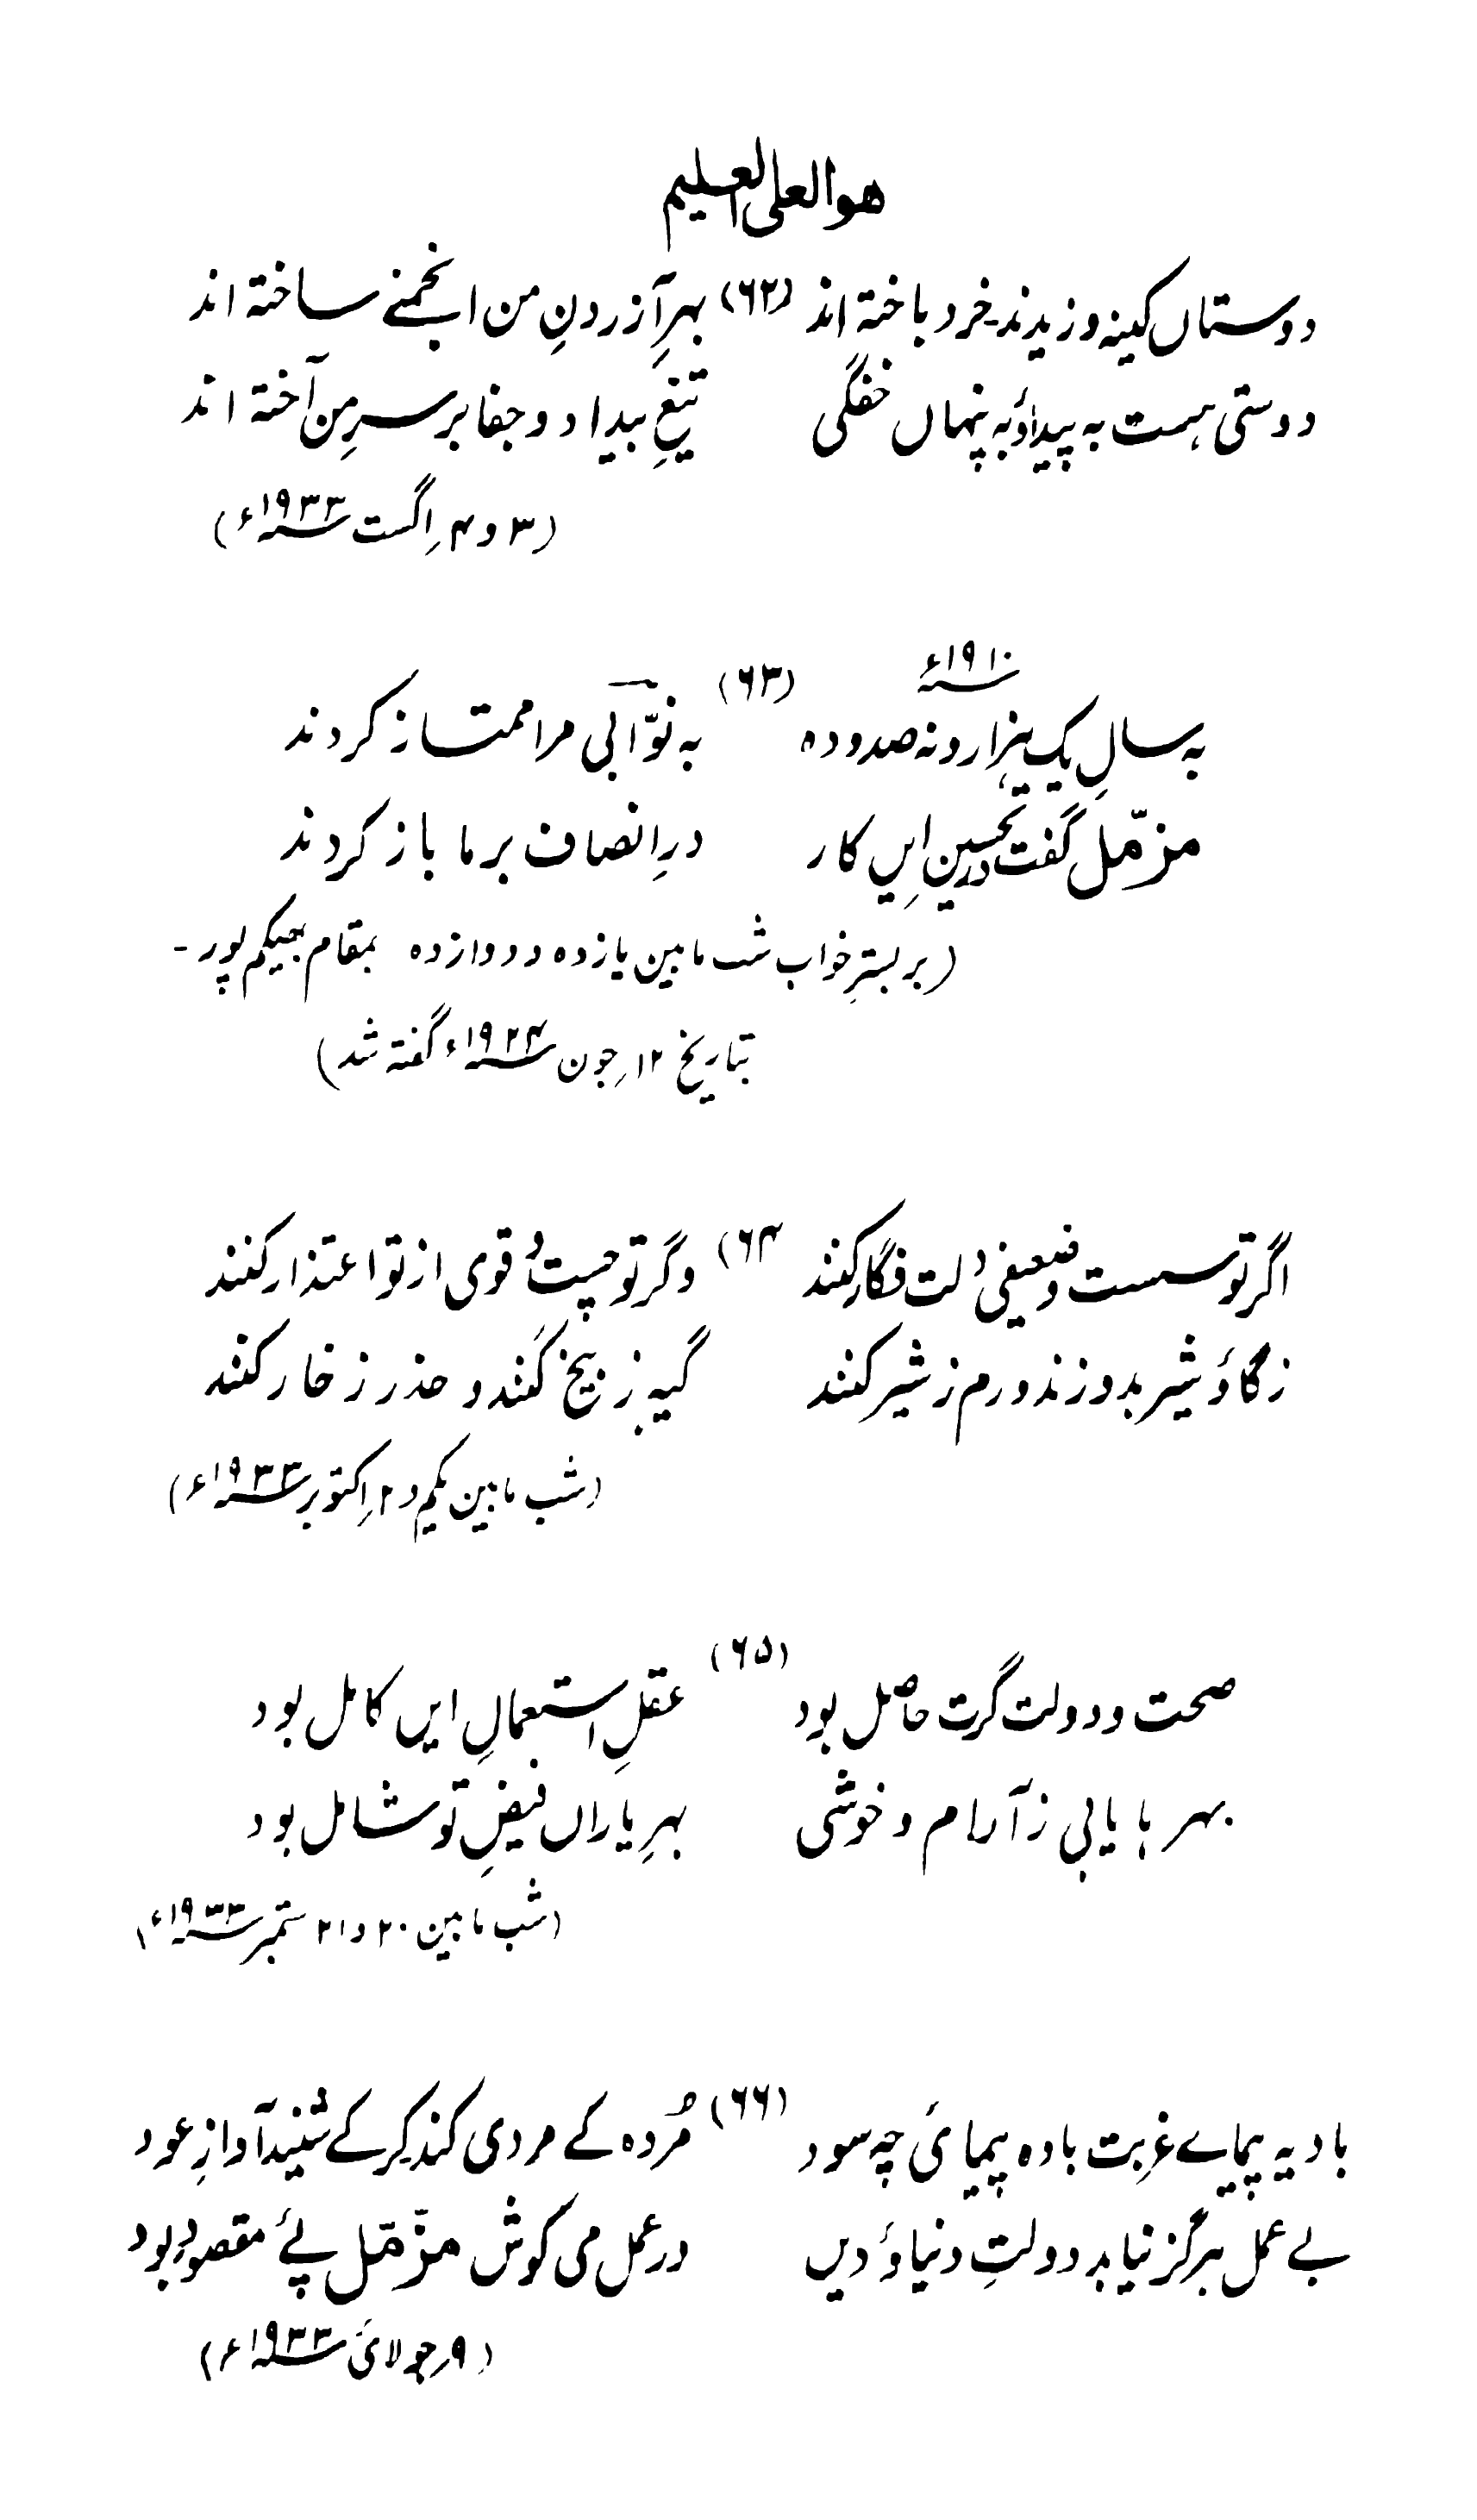 هو العلی العلیم
دوستاں کینه وزیدند خرد باخته اند (۶۲) بهرِ آزردنِ من انجمنے ساخته اند
دوستی هست به پیدا و به پنهاں خفگی تیغِ بیداد و جفا بر سرِ من آخته اند
(۳ و ۴ اگست ۱۹۳۳ء)
۱۹۱۰ء
به سالِ یک هزار و نه صد و ده (۶۳) به نوّابی مرا ممتاز کردند
مزمّل گفت در تحسینِ ایں کار درِ انصاف بر ما باز کردند
(بر بسترِ خواب شب مابین یازده و دوازده بمقام بھیکم پور۔
بتاریخ ۱۲ جون ۱۹۳۴ء گفته شد)
اگر تو سست و ضعیفی دلت فگار کنند (۶۴ وگر تو چست و قوی از تو اعتذار کنند
ز گاؤ شیر بدوزند و رم ز شیر کنند گیه ز بیخ کَنند و حذر ز خار کنند
(شب مابین یکم و ۲ اکتوبر ۱۹۳۳ء)
(۶۵)
صحت و دولت گرت حاصل بود عقلِ استعمالِ ایں کامل بود
بهرها یابی ز آرام و خوشی بهرِ یاراں فیضِ تو شامل بود
(شب مابین ۲۰ و ۲۱ ستمبر ۱۹۳۳ء)
بادیه پیماے غربت باده پیمائی چه سود (۶۶) مُرده کے مردی کند کر کے شنید آوازِ عود
بے عمل هرگز نیابد دولتِ دنیا و دیں در عمل می کوش مزّمّل پئے مقصود بود
(۹ جولائی ۱۹۳۳ء)